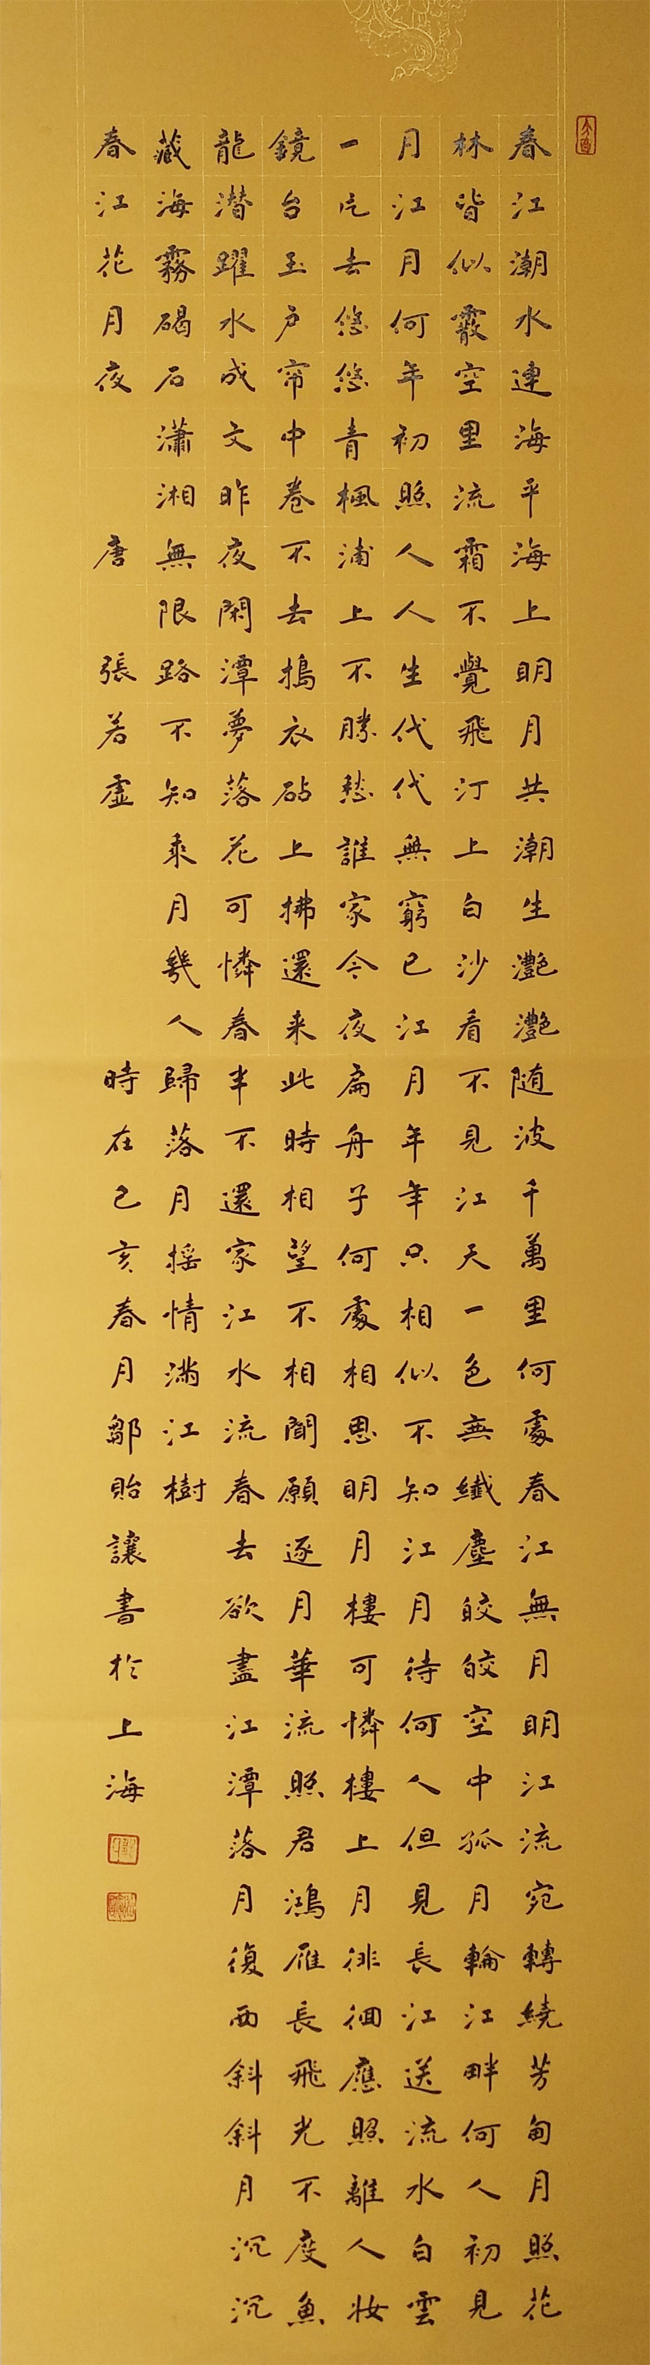 春江潮水連海平海上明月共潮生灔灔随波千萬里何處春江無月明江流宛轉繞芳甸月照花
林皆似霰空里流霜不覺飛汀上白沙看不見江天一色無纖塵皎皎空中孤月輪江畔何人初見
月江月何年初照人人生代代無窮已江月年年只相似不知江月待何人但見長江送流水白雲
一片去悠悠青楓浦上不勝愁誰家今夜扁舟子何處相思明月樓可憐樓上月徘徊應照離人妝
鏡台玉户帘中卷不去搗衣砧上拂還来此時相望不相聞願逐月華流照君鴻雁長飛光不度魚
龍潜躍水成文昨夜閑潭夢落花可憐春半不還家江水流春去欲盡江潭落月復西斜斜月沉沉
藏海霧碣石瀟湘無限路不知乘月幾人歸落月摇情滿江樹
春江花月夜 唐 張若虚 時在己亥春月鄒貽讓書於上海